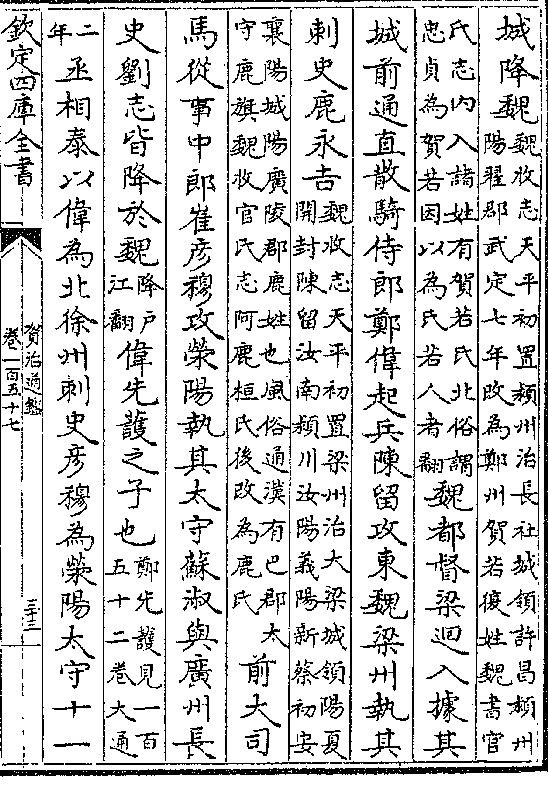 城降魏魏收志天平初置潁州治長社城領許昌潁州
陽翟郡武定七年改為鄭州賀若復姓魏書官
氏志内入諸姓有賀若氏北俗謂
忠貞為賀若因以為氏若人者翻魏都督梁迴入據其
城前通直散騎侍郎鄭偉起兵陳留攻東魏梁州執其
刺史鹿永吉魏收志天平初置梁州治大梁城領陽夏
開封陳留汝南潁川汝陽義陽新蔡初安
襄陽城陽廣陵郡鹿姓也風俗通漢有巴郡太
守鹿旗魏收官氏志阿鹿桓氏後改為鹿氏前大司
馬從事中郎崔彦穆攻滎陽執其太守蘇淑與廣州長
史劉志皆降於魏降户
江翻偉先護之子也鄭先護見一百
五十二卷大通
二年丞相泰以偉為北徐州刺史彦穆為滎陽太守十一
欽定四庫全書
資治通鑑
卷一百五十七
三十三